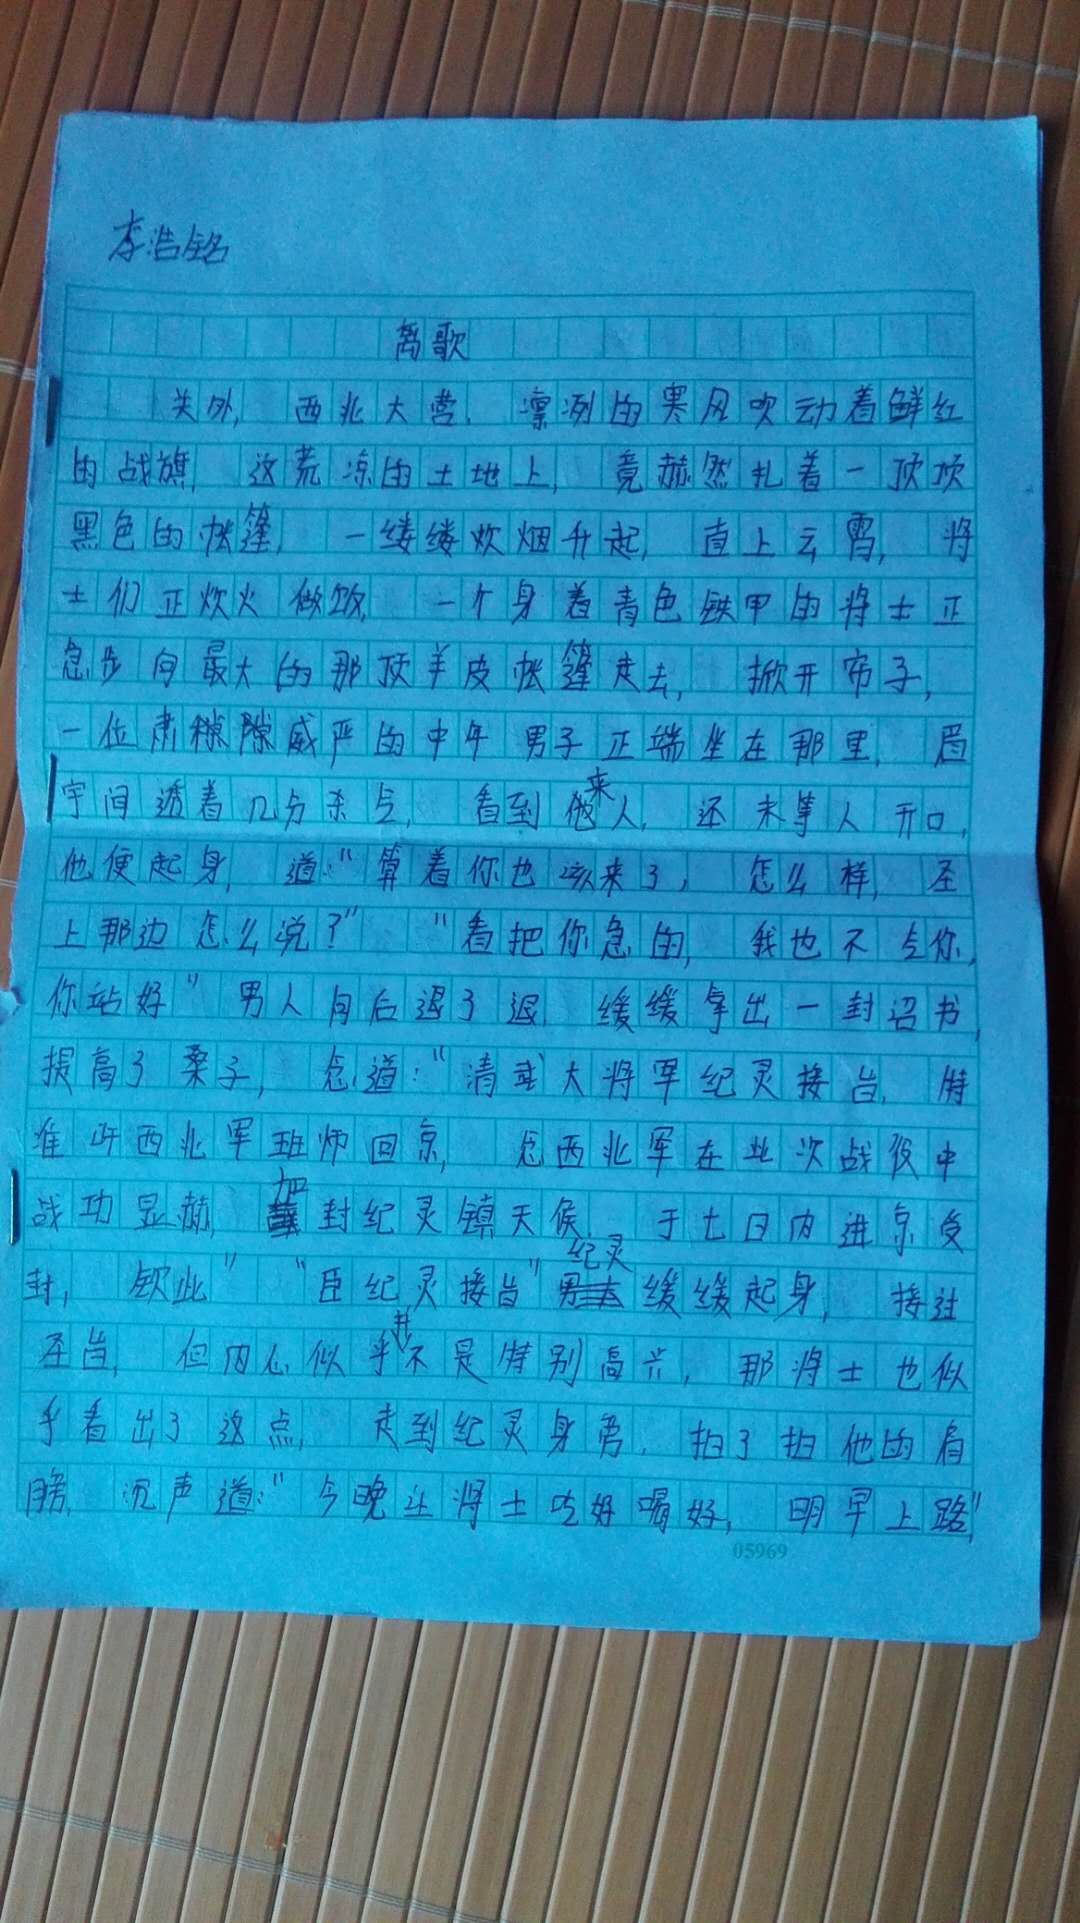 李浩铭
离歌
关外，西北大营，凛冽的寒风吹动着鲜红
的战旗，这荒凉的土地上，竟赫然扎着一顶顶
黑色的帐篷，一缕缕炊烟升起，直上云霄，将
士们正炊火做饭，一个身着青色铁甲的将士正
急步向最大的那顶羊皮帐篷走去，掀开帘子，
一位肃穆威严的中年男子正端坐在那里，眉
宇间透着几分杀气，看到来人，还未等人开口，
他便起身，道：“算着你也该来了，怎么样，圣
上那边怎么说？”“看把你急的，我也不与你，
你站好”男人向后退了退，缓缓拿出一封召书，
提高了桑子，念道：“清武大将军纪灵接旨，特
准许西北军班师回京，念西北军在此次战役中
战功显赫，加封纪灵镇天侯，于七日内进京受
封，钦此”“臣纪灵接旨”纪灵缓缓起身，接过
圣旨，但内心似乎并不是特别高兴，那将士也似
乎看出了这点，走到纪灵身旁，拍了拍他的肩
膀，沉声道：“今晚让将士吃好喝好，明早上路，”
05969